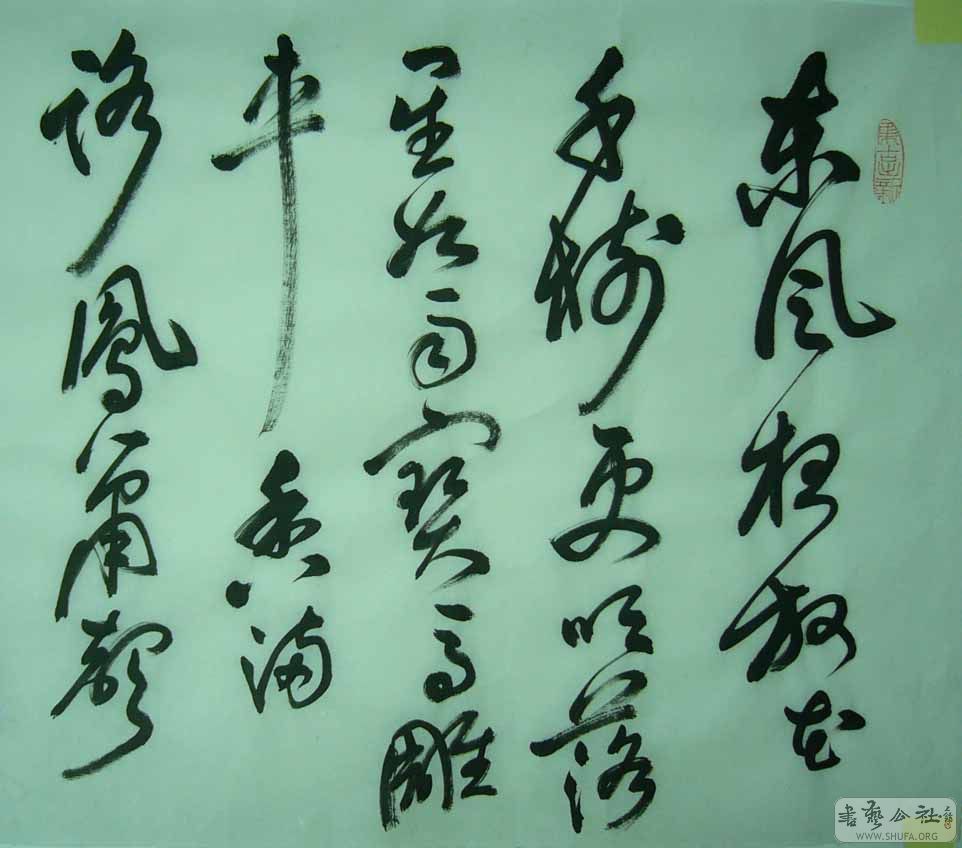 东风夜放花
千树更吹落
星如雨寶马雕
车香满
路鳳箫声
書藝公社
WWW.SHUFA.ORG